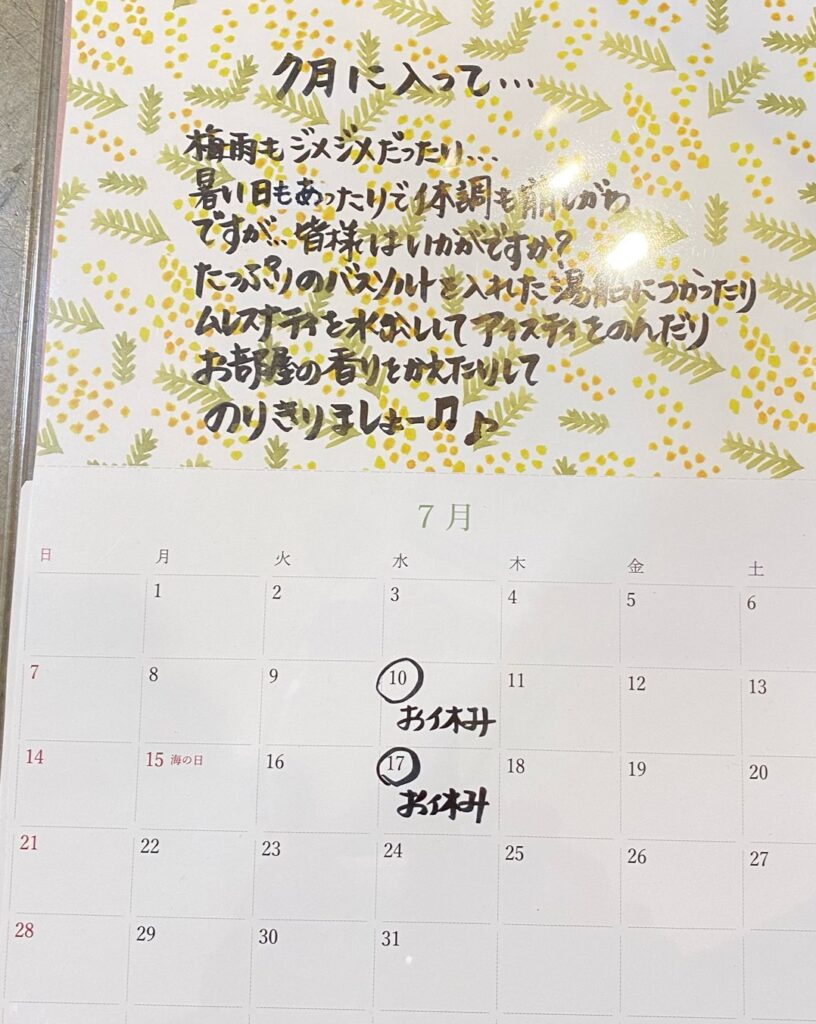 7月に入って…
梅雨もジメジメだったり…
暑い日もあったりで体調も崩しがち
ですが…皆様はいかがですか?
たっぷりのバスソルトを入れた湯船につかったり
ムレスナティを水出ししてアイスティをのんだり
お部屋の香りをかえたりして
のりきりましょー♫♪
7月
日 月 火 水 木 金 土
1 2 3 4 5 6
7 8 9 10 11 12 13
お休み
14 15 海の日 16 17 18 19 20
お休み
21 22 23 24 25 26 27
28 29 30 31